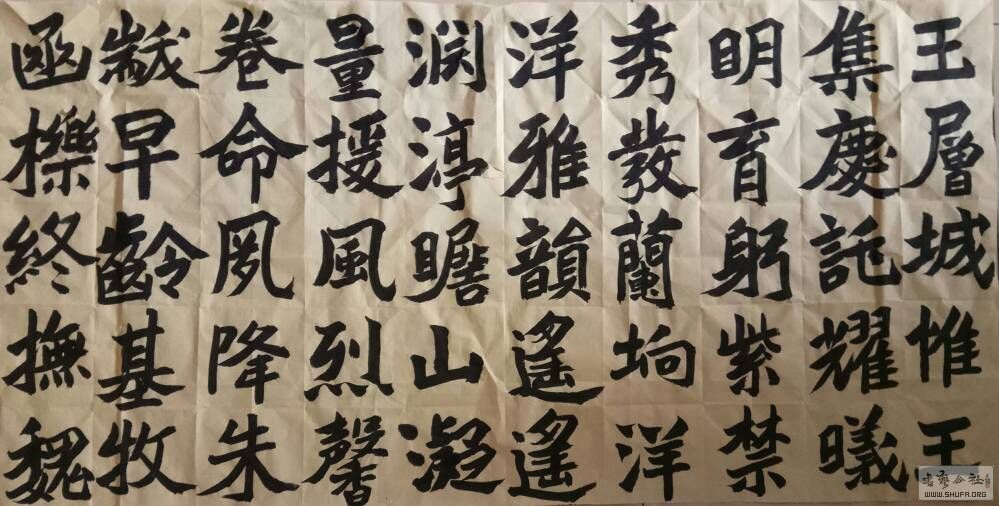 王層城惟王
集慶託耀曦
明育躬紫禁
秀發蘭坰洋
洋雅韻遙遙
渕渟瞻山凝
量援風烈馨
卷命夙降朱
黻早齡基牧
函櫟終撫魏
书艺公社
WWW.SHUFA.ORG